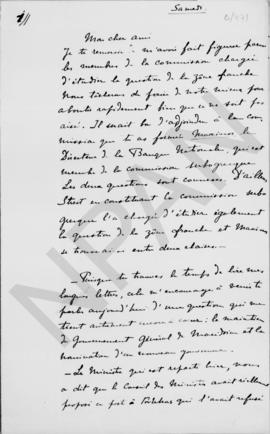 Samedi
1//
Mon cher ami
Je te remercie m'avoir fait figurer parmi
les membres de la commission chargée
d'étudier la question de la zône franche
Nous tâcherons de faire de notre mieux pour
aboutir rapidement bien que ce ne soit pas
aisé. Il serait bon d'adjoindre à la com
mission que tu as formée Maximos le
Directeur de la Banque Nationale, qui est
membre de la commission serbogrecque
Les deux questions sont connexes. D'ailleurs
Streit en constituant la commission serbo
grecque l'a chargé d'étudier également
la question de la zône franche et Maximos
se trouvera entre deux chaises.
— Puisque tu trouves le temps de lire mes
longues lettres, cela m'encourage à venir te
parler aujourd'hui d'une question qui me
tient autrement encore à cœur: le maintien
du Gouvernement Général de Macédoine et la
nomination d'un nouveau gouverneur.
— Le Ministre qui est reparti hier, nous
a dit que le Conseil des Ministres avait
proposé ce poste à qui l'avait refusé
NPAN